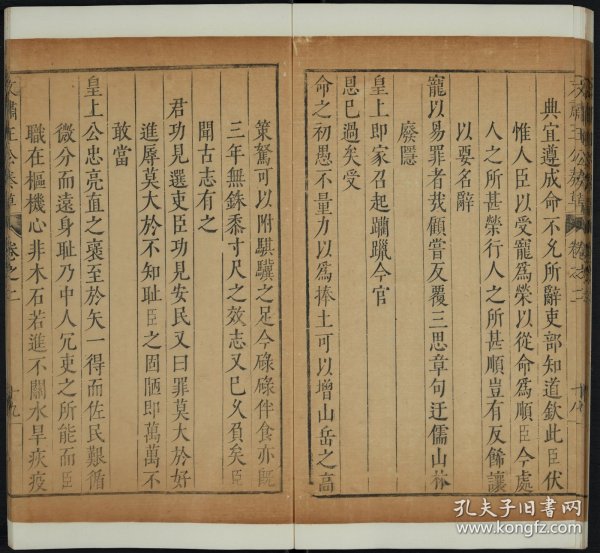 典宜遵成命不允所辭吏部知道欽此臣伏
惟人臣以受寵爲榮以從命爲順臣今處
人之所甚榮行人之所甚順豈有反餙讓
以要名辭
寵以易罪者哉顧嘗反覆三思章句迂儒山林
廢隱
皇上即家召起躐躐今官
恩已過矣受
命之初愚不量力以爲捧土可以增山岳之高
策駑可以附騏驥之足今碌碌伴食亦既
三年無銖黍寸尺之效志又已久負矣臣
聞古志有之
君功見選吏臣功見安民又曰罪莫大於好
進辱莫大於不知耻臣之固陋即萬萬不
敢當
皇上公忠亮直之褒至於矢一得而佐民艱循
微分而遠身耻乃中人冗吏之所能而臣
職在樞機心非木石若進不關水旱疾疫
文肅王公奏草
卷之二
十九
孔夫子旧书网
www.kongfz.com